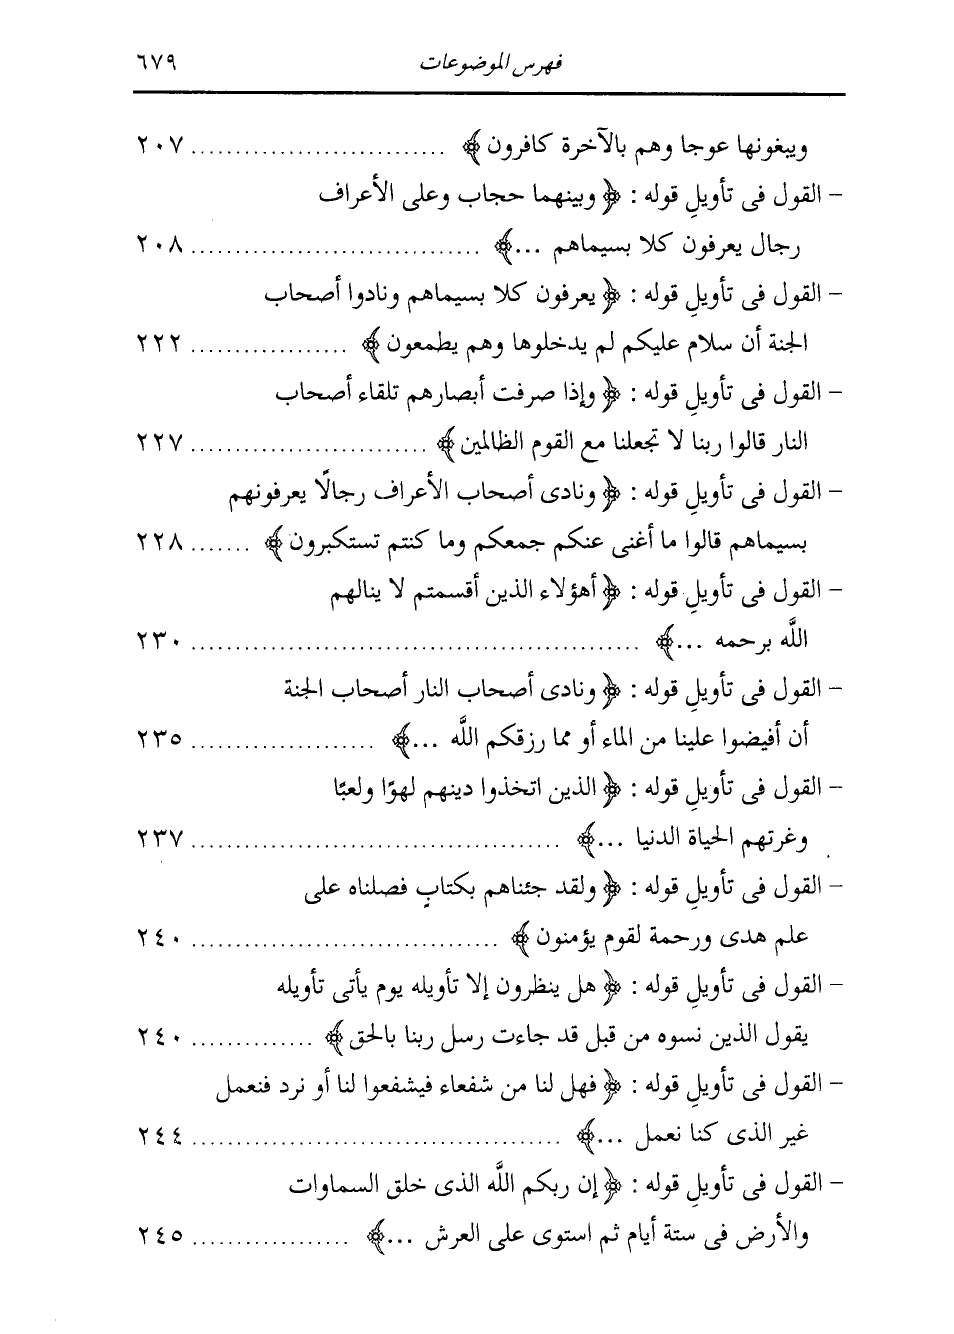 فهرس الموضوعات ٦٧٩
ويبغونها عوجا وهم بالآخرة كافرون ﴾ ............................ ٢٠٧
- القول فى تأويلِ قوله : ﴿ وبينهما حجاب وعلى الأعراف
رجال يعرفون كلا بسيماهم ...﴾ ................................. ٢٠٨
- القول فى تأويلِ قوله : ﴿ يعرفون كلا بسيماهم ونادوا أصحاب
الجنة أن سلام عليكم لم يدخلوها وهم يطمعون ﴾ .................. ٢٢٢
- القول فى تأويلِ قوله : ﴿ وإذا صرفت أبصارهم تلقاء أصحاب
النار قالوا ربنا لا تجعلنا مع القوم الظالمين ﴾ ........................... ٢٢٧
- القول فى تأويلِ قوله : ﴿ ونادى أصحاب الأعراف رجالًا يعرفونهم
بسيماهم قالوا ما أغنى عنكم جمعكم وما كنتم تستكبرون ﴾ ....... ٢٢٨
- القول فى تأويلِ قوله : ﴿ أهؤلاء الذين أقسمتم لا ينالهم
اللَّه برحمه ...﴾ .................................................. ٢٣٠
- القول فى تأويلِ قوله : ﴿ ونادى أصحاب النار أصحاب الجنة
أن أفيضوا علينا من الماء أو مما رزقكم اللَّه ...﴾ ..................... ٢٣٥
- القول فى تأويلِ قوله : ﴿ الذين اتخذوا دينهم لهوًا ولعبًا
وغرتهم الحياة الدنيا ...﴾ ......................................... ٢٣٧
- القول فى تأويلِ قوله : ﴿ ولقد جئناهم بكتابٍ فصلناه على
علم هدى ورحمة لقوم يؤمنون ﴾ .................................. ٢٤٠
- القول فى تأويلِ قوله : ﴿ هل ينظرون إلا تأويله يوم يأتى تأويله
يقول الذين نسوه من قبل قد جاءت رسل ربنا بالحق ﴾ .............. ٢٤٠
- القول فى تأويلِ قوله : ﴿ فهل لنا من شفعاء فيشفعوا لنا أو نرد فنعمل
غير الذى كنا نعمل ...﴾ ......................................... ٢٤٤
- القول فى تأويلِ قوله : ﴿ إن ربكم اللَّه الذى خلق السماوات
والأرض فى ستة أيام ثم استوى على العرش ...﴾ .................. ٢٤٥